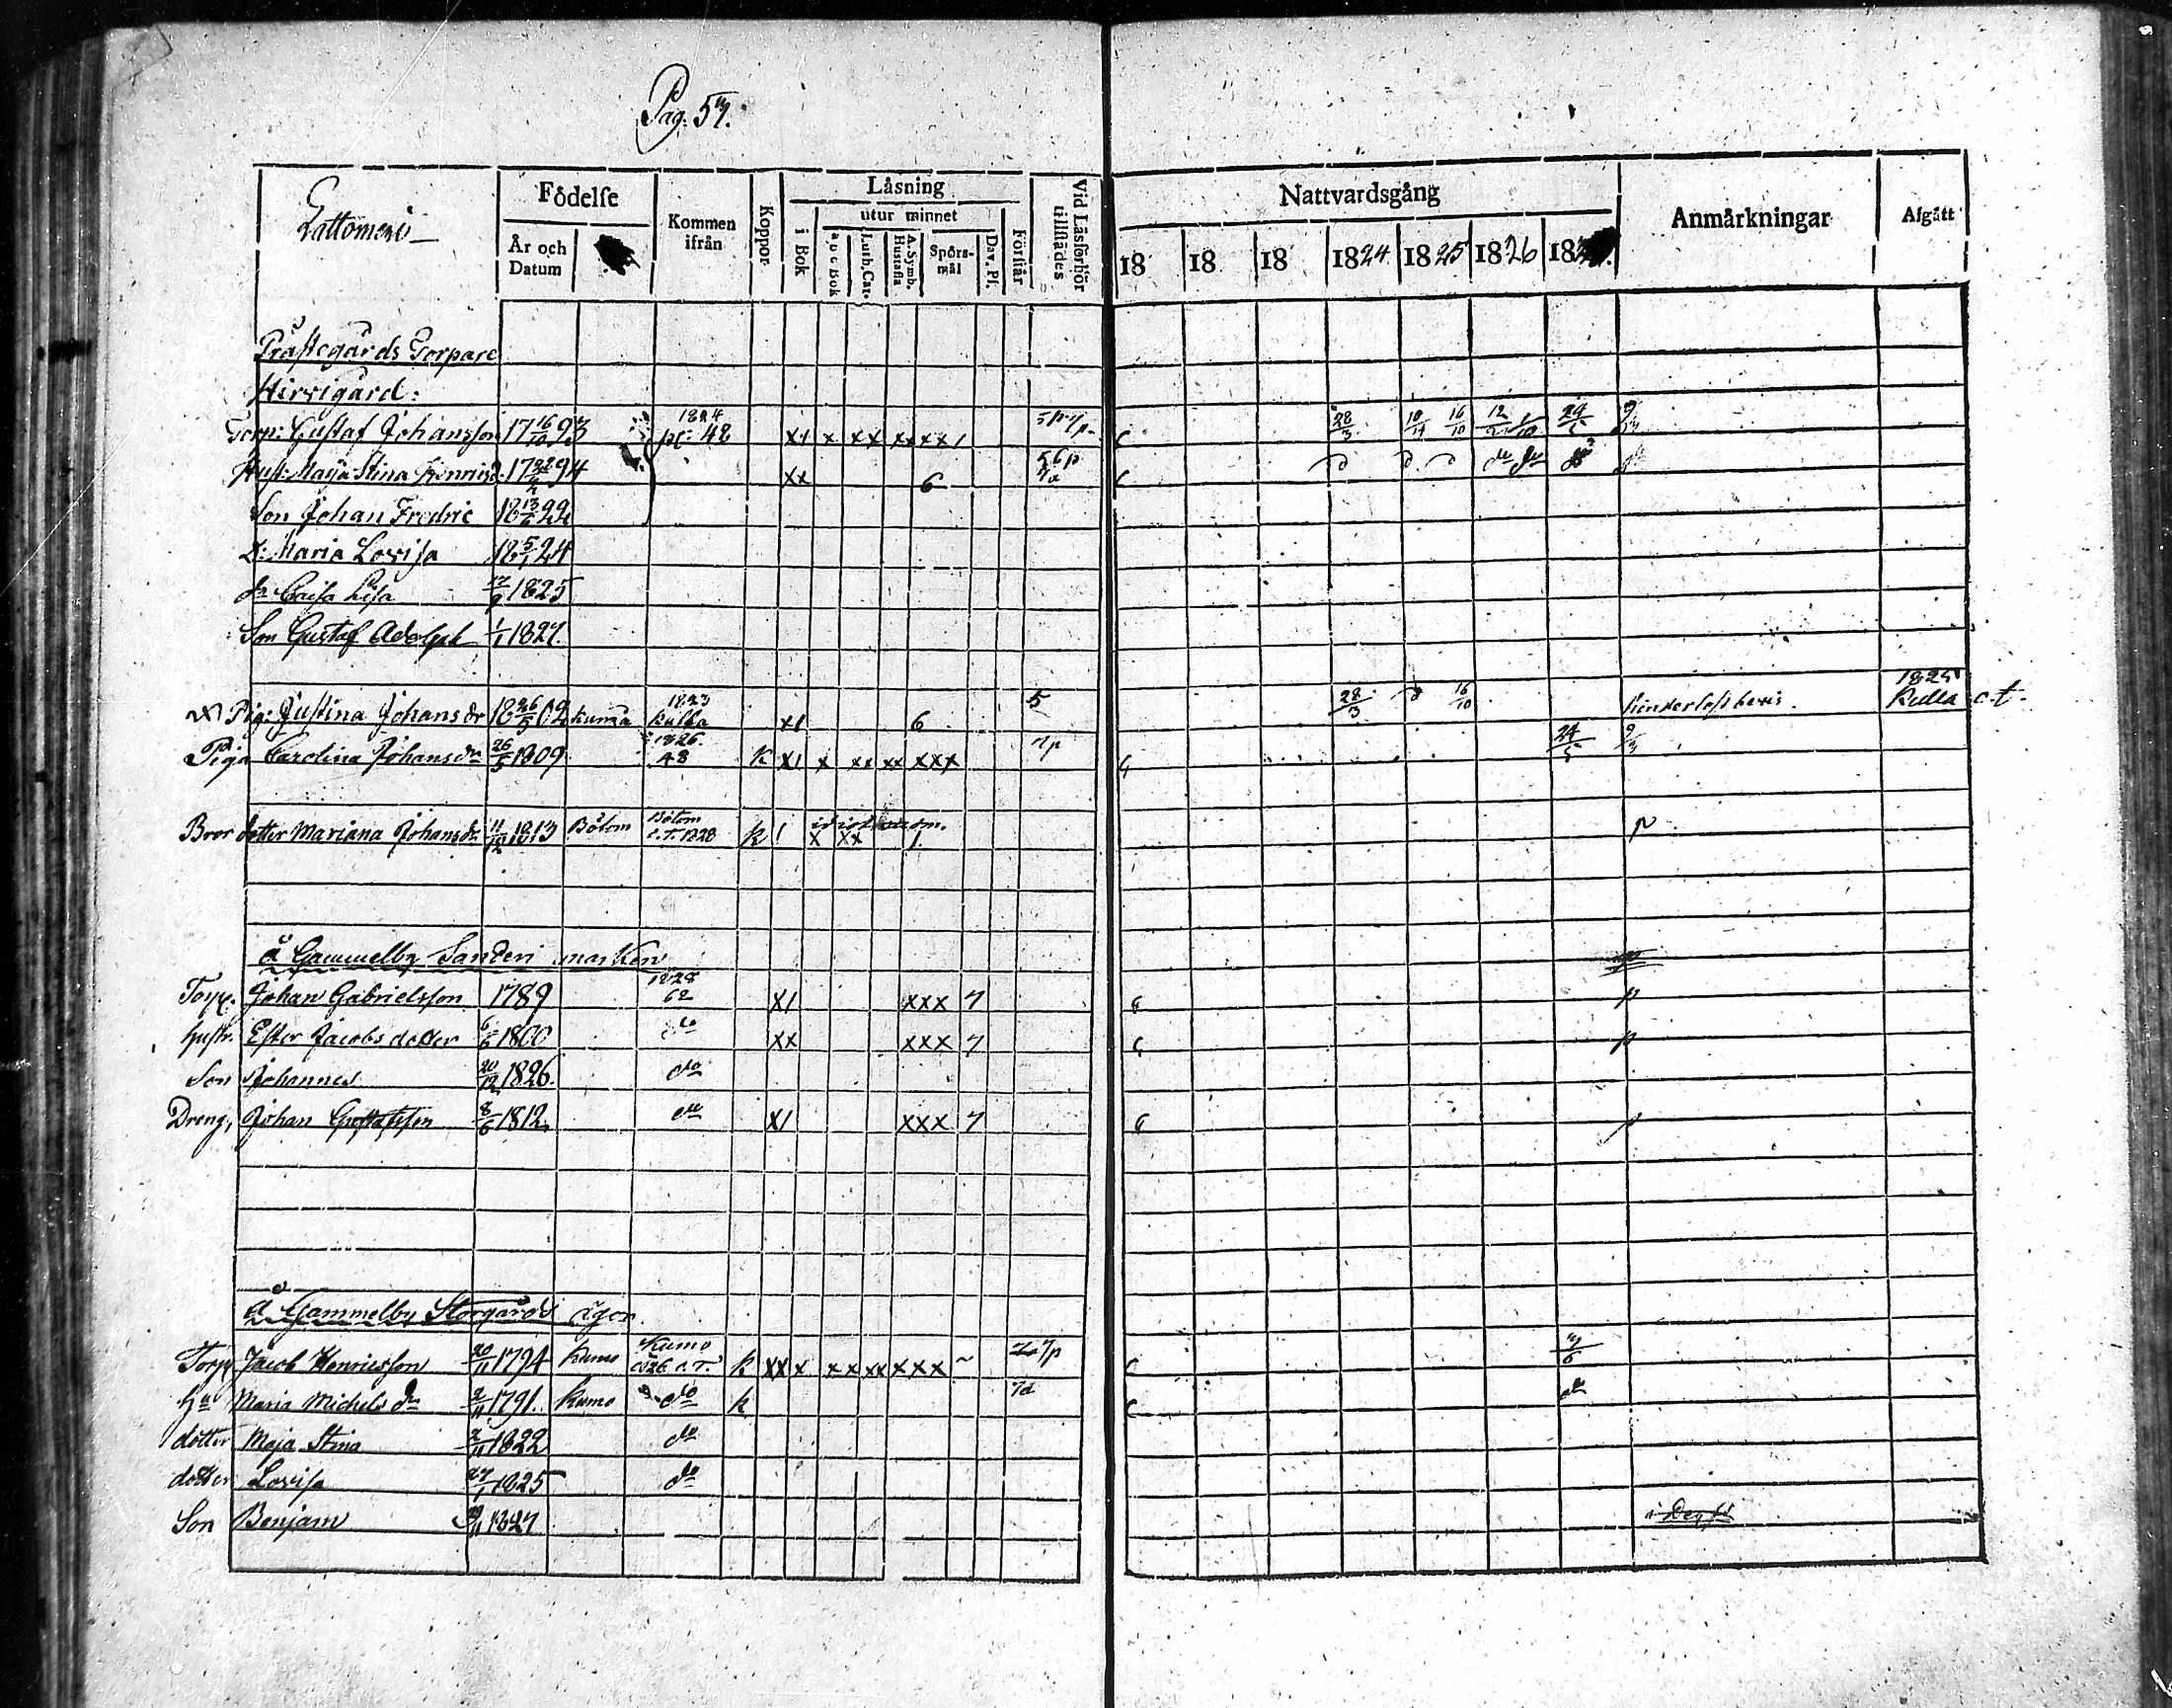 Pag. 57.
Lattomeri
Födelse
År och Datum
Kommen ifrån
Koppor
Läsning
utur minnet
i Bok
a b c Bok
Luth. Cat.
A. Symb. Hustafla
Spörs-mål
Dav. Ps.
Förstår
Vid Läsförhör tillstädes
Nattvardsgång
18 18 18 1824 1825 1826 18
Anmärkningar
Afgått
Prästegårds Torpare
Hirvigård:
Torp: Gustaf Johansson 17 16/10 93 1824 pc. 48 x1 x xx xx xx 1 28/3 16/10 24/5
Hust: Maija Stina Henricsd. 17 94 xx 6
Son Johan Fredric 18 13/6 22
D: Maria Lovisa 18 5/1 24
do Caisa Lisa 17/9 1825
Son Gustaf Adolph 1/1 1827.
Pig: Justina Johansdr 18 26/5 02 Kumo 1823 Kulla x1 6 5 28/3 16/10 hinderlöst bevis. 1825 Kulla c.t.
Piga Carolina Johansdr 26/5 1809 1826. 48 k x1 x xx xx xxx 7p 24/5 9/3
Brordotter Mariana Johansdr 11/12 1813 Bötom Bötom c.T. 1828 k 1 x xx 1. p
å Gammelby Sanderi marken
Torp. Johan Gabrielsson 1789 1828 62 x1 xxx 7 p
Hustr. Ester Jacobsdotter 6/6 1800 do xx xxx 7 p
Son Johannes 20/12 1826. do
Dreng, Johan Gustafsson 8/6 1812. do x1 xxx 7 p
å Gammelby Storgårds ägor
Torp Jacob Henricsson 20/11 1794 Kumo Kumo 1826 c.T. k xx x xx xx xxx 7p
Ha Maria Michelsdr 2/11 1791. Kumo do k 7d do
dotter Maja Stina 2/11 1822 do
dotter Lovisa 27/1 1825 do
Son Benjam 1827